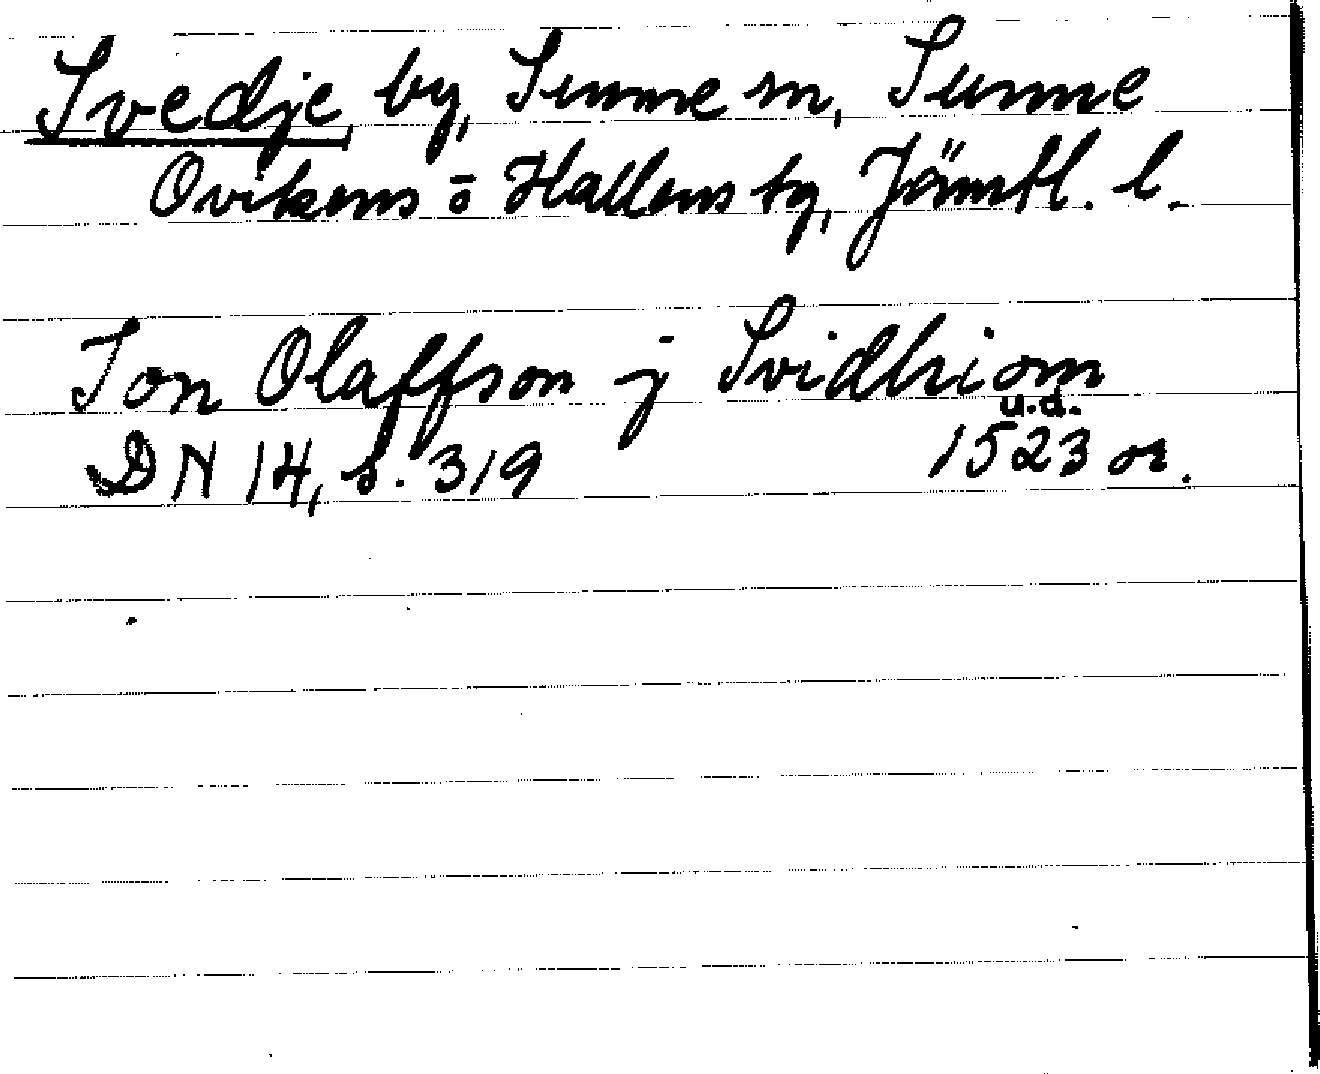 Svedje, by, Sunne sn, Sunne
Ovikens o Hallens tg, Jämtl. l.
Jon Olaffson j Svidhiom
u.d.
DN 14, s. 319 1523 or.